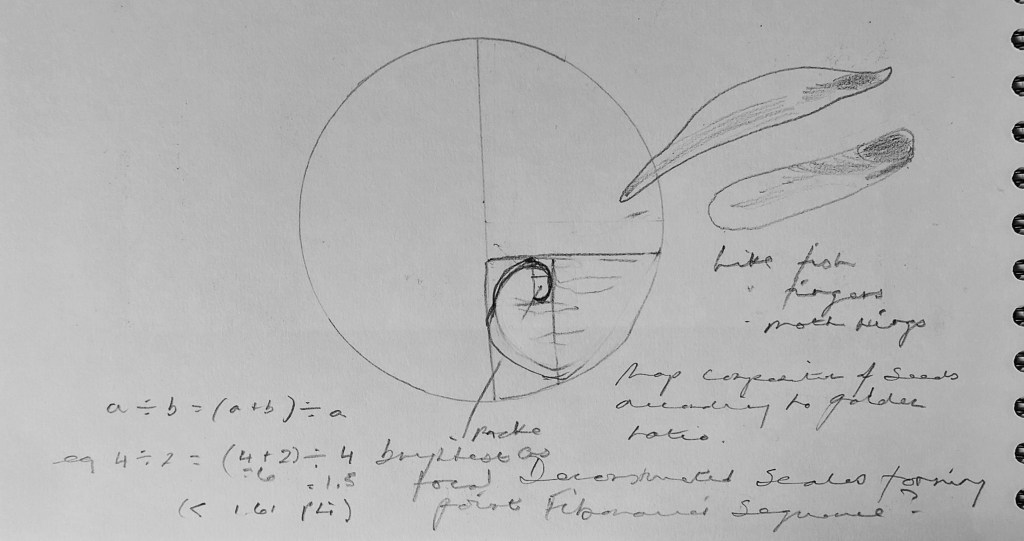 Like fish
" fingers
" moth wings
Map composition of seeds
according to golden
ratio.
a ÷ b = (a+b) ÷ a
eg 4 ÷ 2 = (4+2) ÷ 4
= 6
= 1.5
(< 1.61 phi)
make
brightest as
focal
point
Deconstructed scales forming
Fibonacci Sequence?